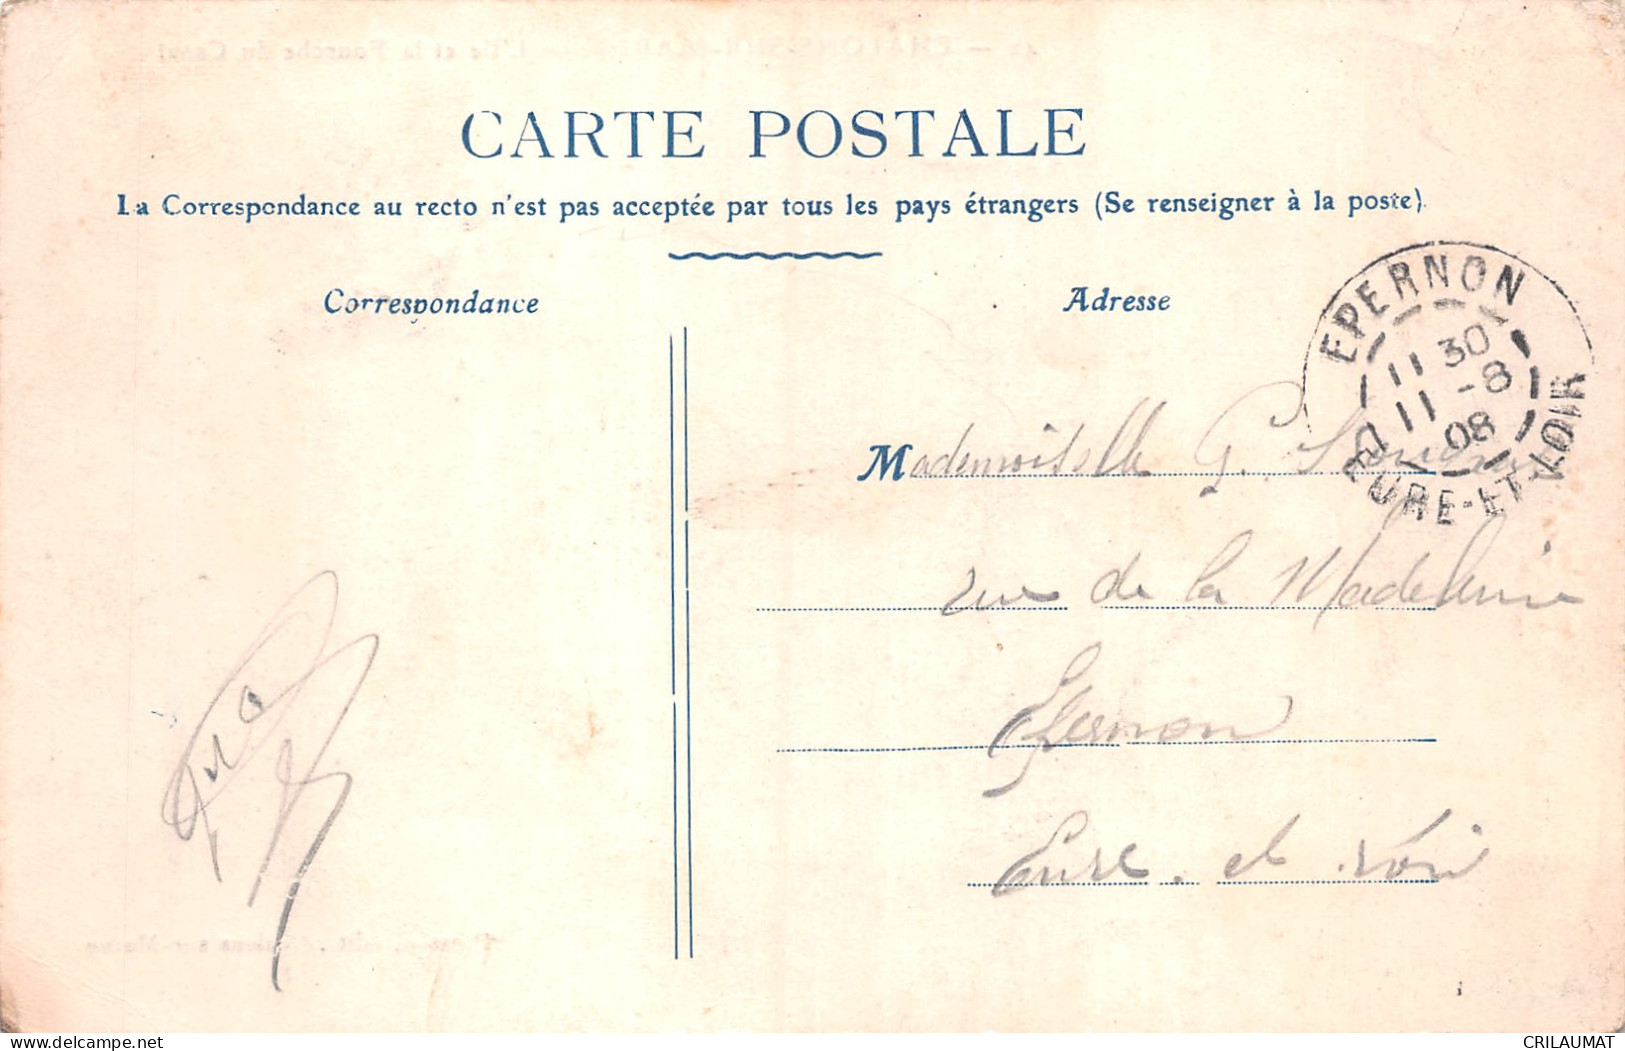 CARTE POSTALE
La Correspondance au recto n'est pas acceptée par tous les pays étrangers (Se renseigner à la poste).
Correspondance
Adresse
EPERNON
11 30
11 -8
08
EURE-ET-LOIR
Mademoiselle G.
rue de la Madeleine
Epernon
Eure. et. Loir
CRILAUMAT